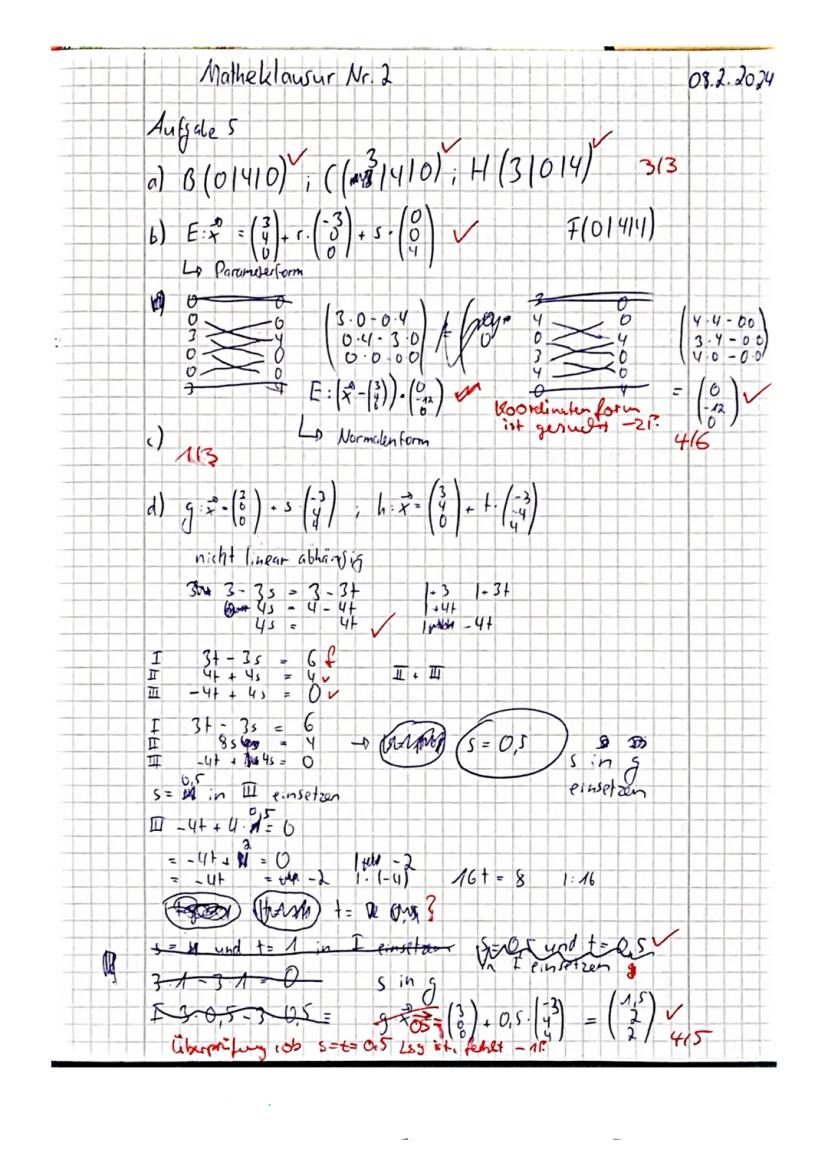 Matheklausur Nr. 2 08.2.2024
Aufgabe 5
a) B(0|4|0) ✓ ; C(3|4|0) ✓ ; H(3|0|4) ✓ 3/3
b) E: x⃗ = (3 4 0) + r · (-3 0 0) + s · (0 0 4) ✓ F(0|4|4)
↳ Parameterform
0 0 3 0
0 0 (3·0-0·4) 4 0 (4·4-00)
3 4 (0·4-3·0) 0 4 (3·4-0·0)
0 0 (0·0-0·0) 3 0 (4·0-0·0)
0 0 4 0
3 4 0 4
E: (x⃗ - (3 4 0)) · (0 -12 0) ✓ = (0 -12 0) ✓
Koordinatenform
ist gesucht -2P.
4/6
↳ Normalenform
c)
1/3
d) g: x⃗ = (3 0 0) + s · (-3 4 4) ; h: x⃗ = (3 4 0) + t · (-3 -4 4)
nicht linear abhängig
3 - 3s = 3 - 3t |+3 |+3t
4s = 4 - 4t |+4t
4s = 4t ✓ | -4t
I 3t - 3s = 6 f
II 4t + 4s = 4 ✓ II + III
III -4t + 4s = 0 ✓
I 3t - 3s = 6
II 8s = 4 → s = 0,5
III -4t + 4s = 0
s in g
einsetzen
s = 0,5 in III einsetzen
III -4t + 4 · 0,5 = 0
= -4t + 2 = 0 | -2
= -4t = -2 |·(-4) 16t = 8 |:16
t = 0,5 ?
s = und t = 1 in I einsetzen s=0,5 und t=0,5 ✓
in I einsetzen g
3·1 - 3·1 = 0 s in g
I 3·0,5 - 3·0,5 = g x⃗ OS = (3 0 0) + 0,5 · (-3 4 4) = (1,5 2 2) ✓
Überprüfung, ob s=t=0,5 Lsg ist, fehlt -1P. 4/5